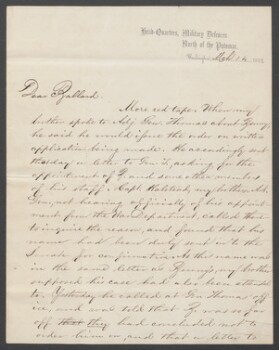 Head-Quarters, Military Defences
North of the Potomac.
Washington, Mch 186
Dear Ballard.
More red tape. When my
brother spoke to Adj. Gen. Thomas about Lenny,
he said he would issue the order on written
application being made. He accordingly sent
that day a letter to Gen. T, asking for the
appointment of L and some other members
of his staff. Capt. Halstead, my brother's Adj.
Gen, not hearing officially of his appoint-
ment from the War Department, called there
to inquire the reason, and found that his
name had been duly sent in to the
Senate for confirmation. As this name was
in the same letter as Lenny's, my brother
supposed his case had also been attend-
ed to. Yesterday he called at Gen Thomas' off-
ice, and was told that L was so far
off that they had concluded not to
order him on, and that a letter to